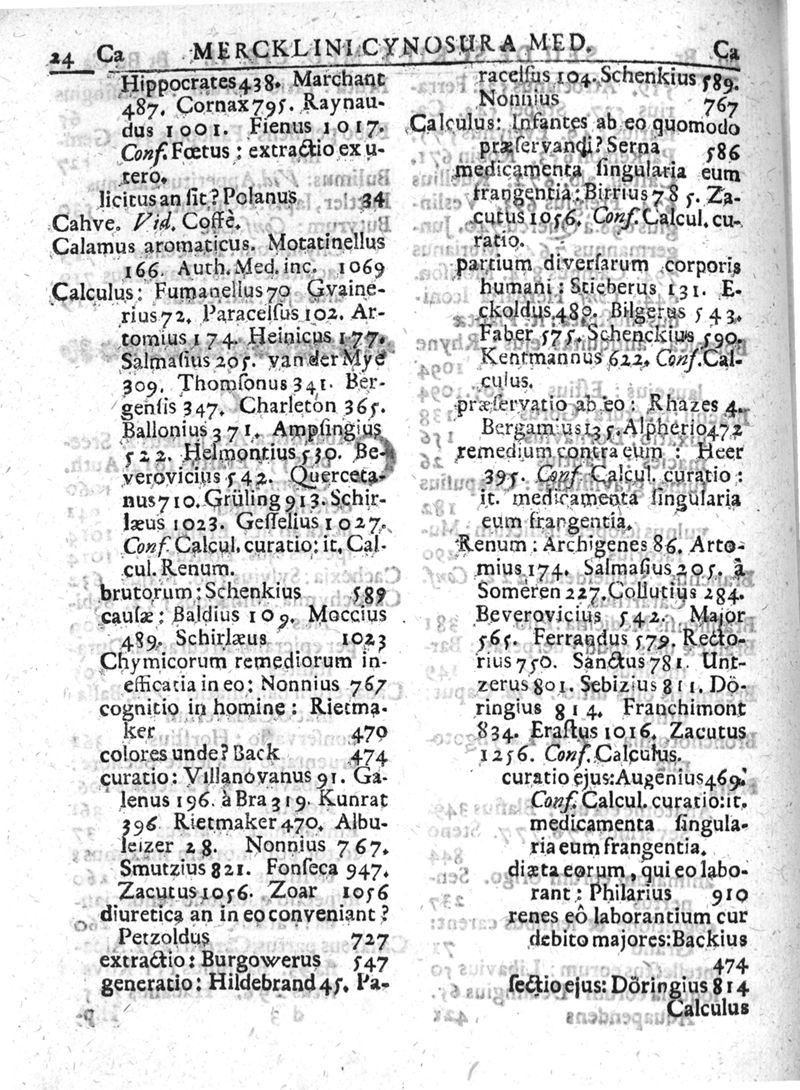 24 Ca MERCKLINI CYNOSURA MED. Ca
Hippocrates 438. Marchant
487. Cornax 795. Raynau-
dus 1001. Fienus 1017.
Conf. Fœtus : extractio ex u-
tero.
licitus an ſit? Polanus 34
Cahve. Vid. Coffè.
Calamus aromaticus. Motatinellus
166. Auth. Med. inc. 1069
Calculus: Fumanellus 70 Gvaine-
rius 72. Paracelſus 102. Ar-
tomius 174. Heinicus 177.
Salmaſius 205. van der Mye
309. Thomſonus 341. Ber-
genſis 347. Charleton 365.
Ballonius 371. Ampſingius
522. Helmontius 530. Be-
verovicius 542. Querceta-
nus 710. Grüling 913. Schir-
læus 1023. Geſſelius 1027.
Conf. Calcul. curatio: it. Cal-
cul. Renum.
brutorum: Schenkius 589
cauſæ: Baldius 109. Moccius
489. Schirlæus 1023
Chymicorum remediorum in-
efficatia in eo: Nonnius 767
cognitio in homine : Rietma-
ker 470
colores unde? Back 474
curatio: Villanovanus 91. Ga-
lenus 196. à Bra 319. Kunrat
396 Rietmaker 470. Albu-
leizer 28. Nonnius 767.
Smutzius 821. Fonſeca 947.
Zacutus 1056. Zoar 1056
diuretica an in eo conveniant ?
Petzoldus 727
extractio: Burgowerus 547
generatio: Hildebrand 45. Pa-
racelſus 104. Schenkius 589.
Nonnius 767
Calculus: Infantes ab eo quomodo
præſervandi? Serna 586
medicamenta ſingularia eum
frangentia: Birrius 785. Za-
cutus 1056. Conf. Calcul. cu-
ratio.
partium diverſarum corporis
humani : Stieberus 131. E-
ckoldus 480. Bilgerus 543.
Faber 575. Schenckius 590.
Kentmannus 622. Conf. Cal-
culus.
præſervatio ab eo: Rhazes 4.
Bergamius 135. Alpherio 472
remedium contra eum : Heer
395. Conf. Calcul. curatio :
it. medicamenta ſingularia
eum frangentia.
Renum : Archigenes 86. Arto-
mius 174. Salmaſius 205. à
Someren 227. Collutius 284.
Beverovicius 542. Major
565. Ferrandus 579. Recto-
rius 750. Sanctus 781. Unt-
zerus 801. Sebizius 811. Dö-
ringius 814. Franchimont
834. Eraſtus 1016. Zacutus
1256. Conf. Calculus.
curatio ejus: Augenius 469.
Conf. Calcul. curatio: it.
medicamenta ſingula-
ria eum frangentia.
diæta eorum, qui eo labo-
rant : Philarius 910
renes eô laborantium cur
debito majores: Backius
474
ſectio ejus: Döringius 814
Calculus